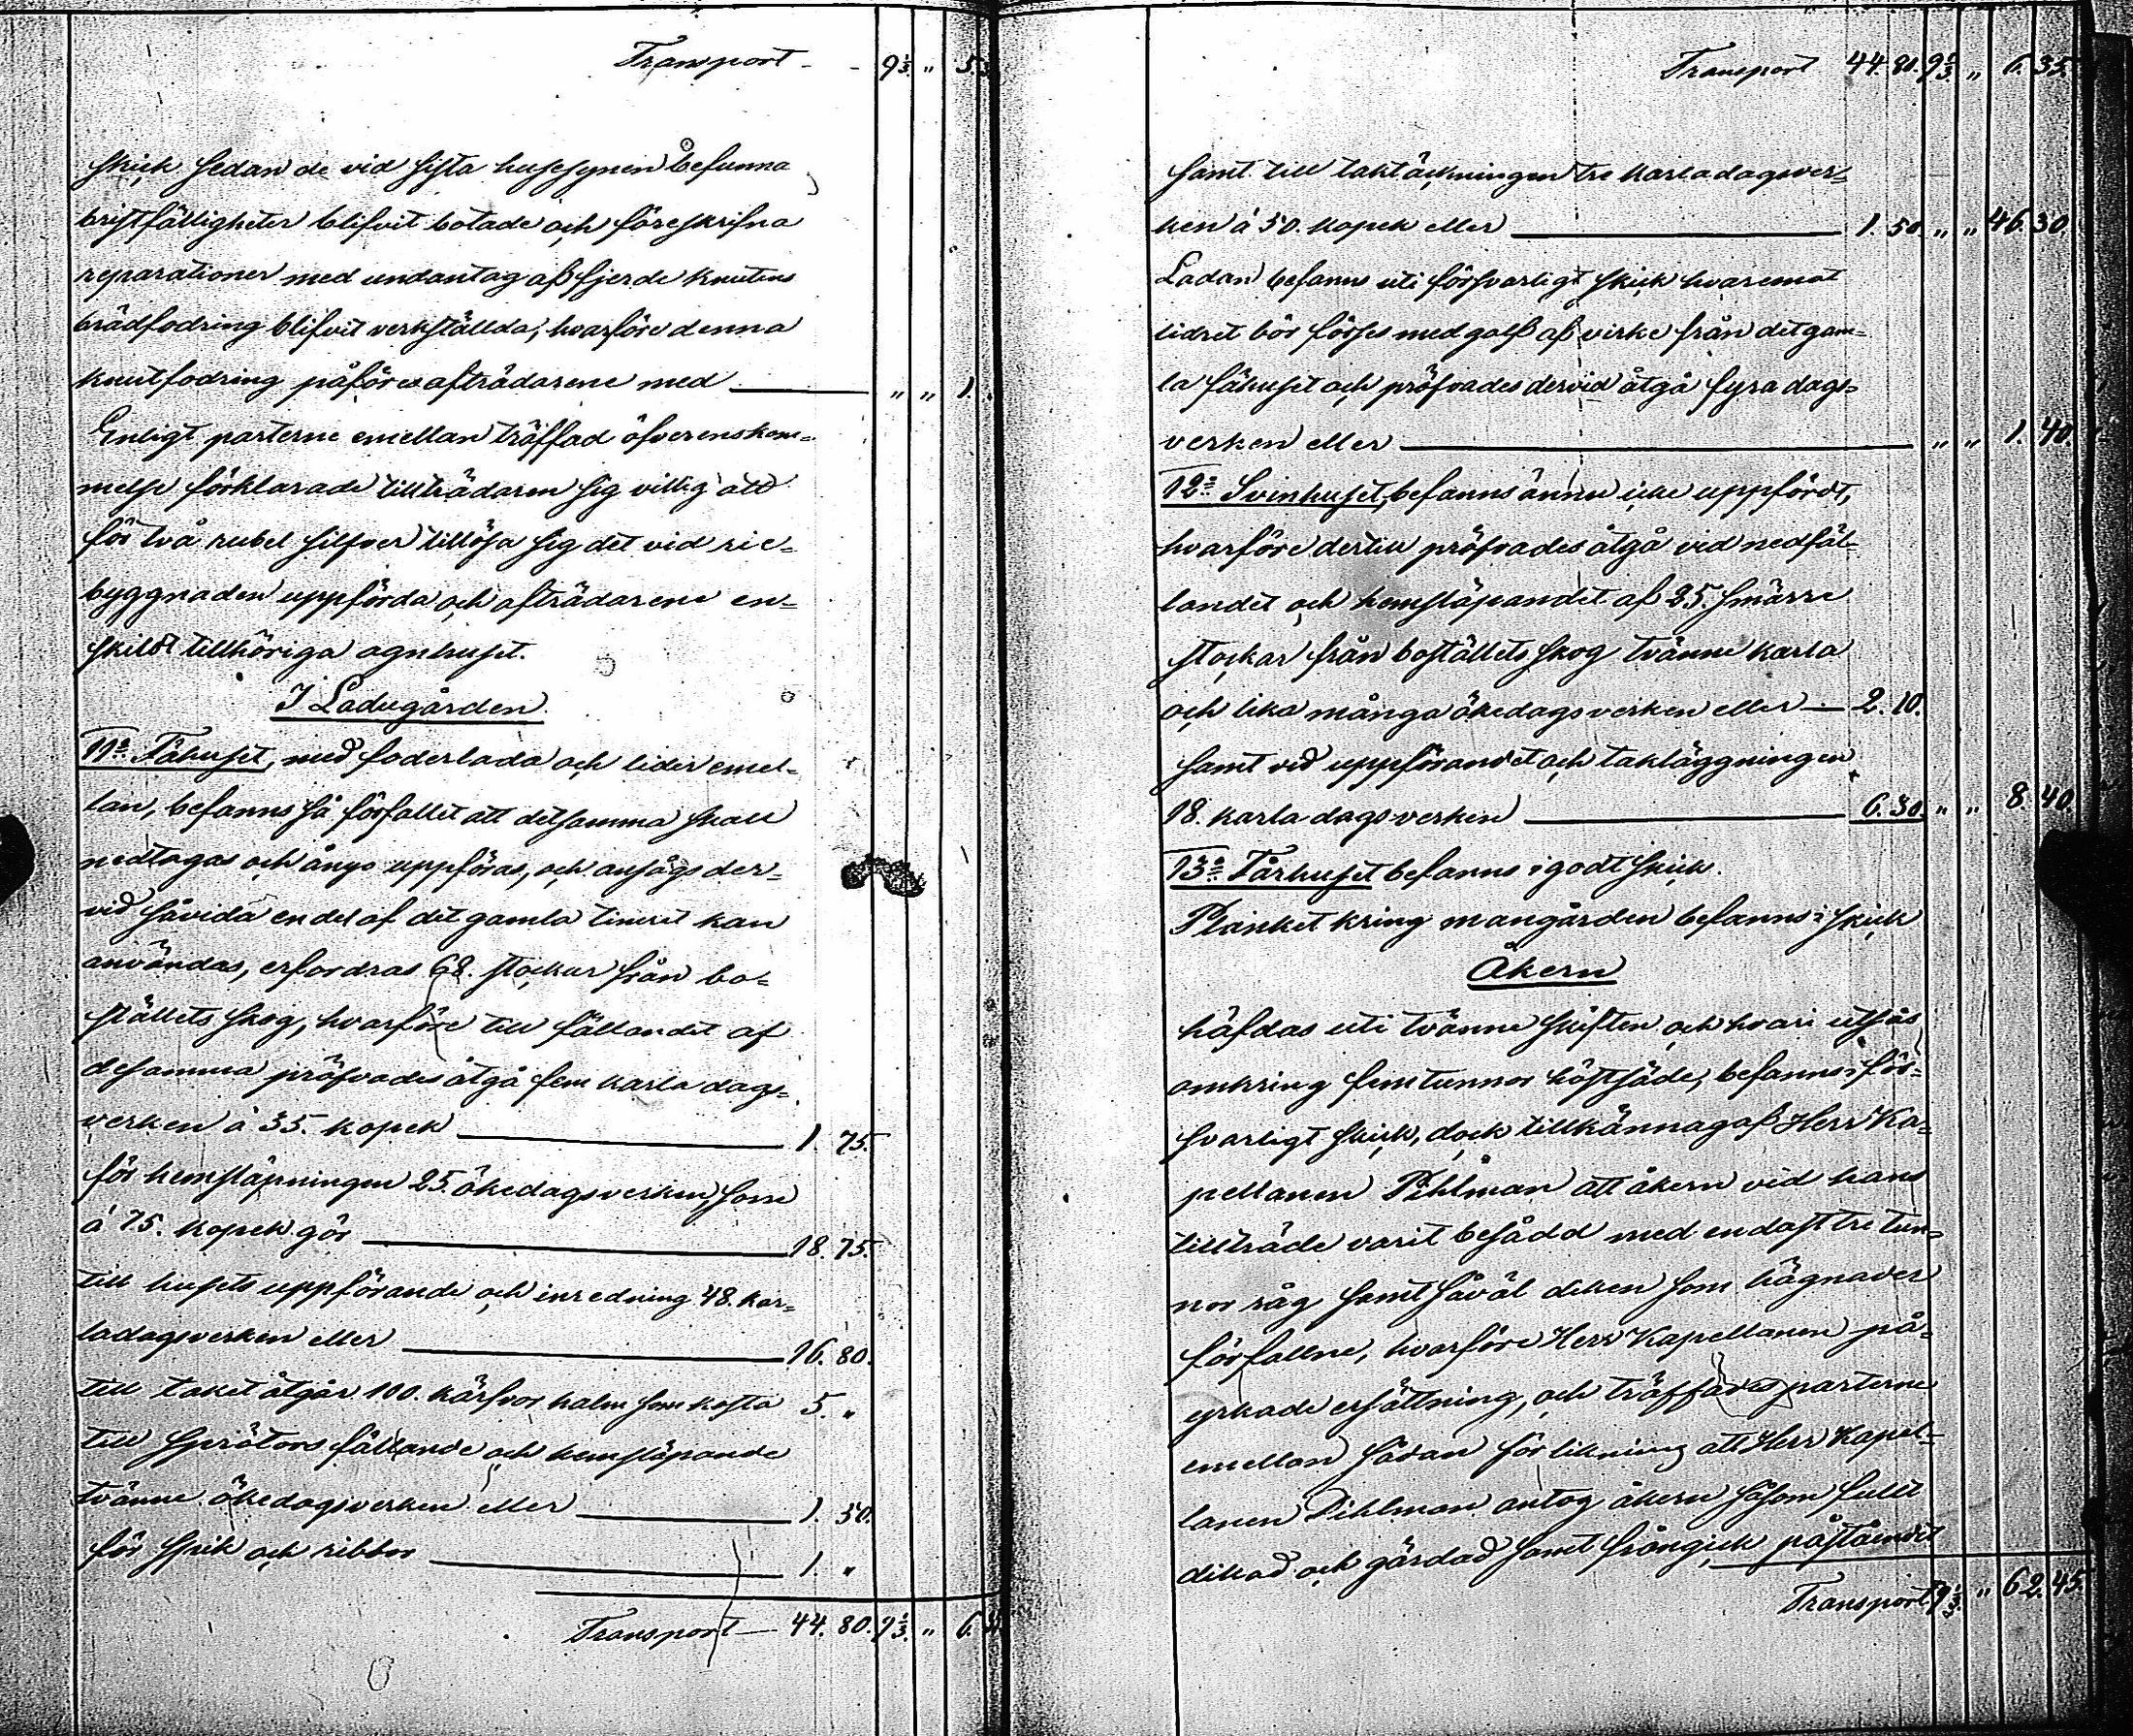 Transport - - 9 1/3. „ 5.
skick sedan de vid sista husesynen befunna
bristfälligheter blifvit botade och föreskrifna
reparationer med undantag af fjerde knutens
brädfodring blifvit verkställda, hvarföre denna
knutfodring påföres afträdarene med „ „ 1.
Enligt parterne emellan träffad öfverenskom=
melse förklarade tillträdaren sig villig att
för två rubel silfver tillösa sig det vid rie=
byggnaden uppförda och afträdarene en=
skildt tillhöriga agnhuset.
I Ladugården
11=o Fähuset, med foderlada och lider emel=
lan, befanns så förfallet att detsamma skall
nedtagas och ånyo uppföras, och ansågs der=
vid såvida en del af det gamla timret kan
användas, erfordras 68. stockar från bo=
ställets skog, hvarföre till fällandet af
desamma pröfvades åtgå fem karla dags=
verken à 35. kopek 1. 75.
för hemsläpningen 25. ökedagsverken, som
à 75. kopek gör 18. 75.
till husets uppförande och inredning 48. kar=
ladagsverken eller 16. 80.
till taket åtgår 100. kärfvor halm som kosta 5. „
till sprötors fällande och hemsläpande
tvänne ökedagsverken eller 1. 50.
för spik och ribbor 1. „
Transport — 44. 80. 9 1/3. „ 6.
Transport 44. 80. 9 1/3 „ 6. 35.
samt till taktäckningen tre karladagsver=
ken à 50. kopek eller 1. 50. „ „ 46. 30.
Ladan befanns uti försvarligt skick hvaremot
lidret bör förses med golf af virke från det gam=
la fähuset och pröfvades dervid åtgå fyra dags=
verken eller „ „ 1. 40.
12=o Svinhuset, befanns ännu icke uppfördt,
hvarföre dertill pröfvades åtgå vid nedfäl=
landet och hemsläpandet af 25. smärre
stockar från boställets skog tvänne karla
och lika många ökedagsverken eller — 2. 10.
samt vid uppförandet och takläggningen
18. karla dagsverken 6. 30. „ „ 8. 40.
13=o Fårhuset befanns i godt skick.
Planket kring mangården befanns i skick
Åkern
häfdas uti tvänne skiften och hvari utsås
omkring fem tunnor höstsäde, befanns i för=
svarligt skick, dock tillkännagaf Herr Ka=
pellanen Pihlman att åkern vid hans
tillträde varit besådd med endast tre tun=
nor råg samt såväl diken som hägnader
förfallne, hvarföre Herr Kapellanen på=
yrkade ersättning, och träffades parterne
emellan sådan förlikning att Herr Kapel=
lanen Pihlman antog åkern såsom fullt
dikad och gärdad samt frångick påståendet
Transport. 9 1/3. „ 62. 45.